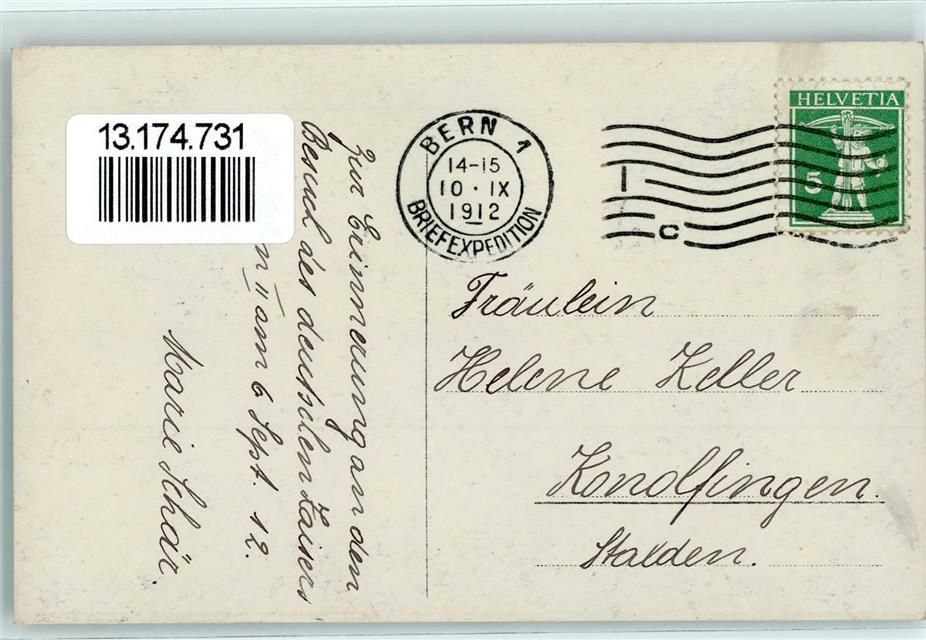 13.174.731
BERN 1
14-15
10·IX
1912
BRIEFEXPEDITION
C
HELVETIA
5
Zur Erinnerung an den
Besuch des deutschen Kaisers
n II am 6 Sept. 12.
Marie Schär.
Fräulein
Helene Keller
Konolfingen.
Stalden.